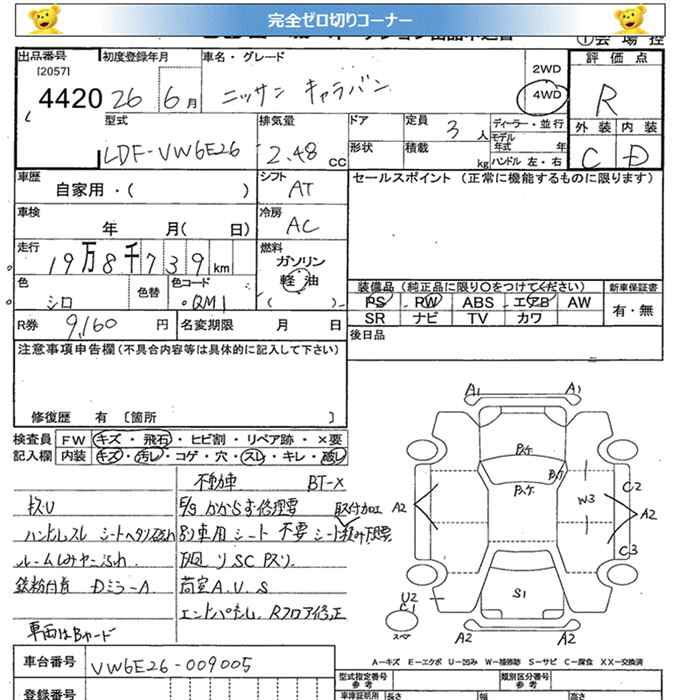 完全ゼロ切りコーナー
①会場控
出品番号 初度登録年月 車名・グレード 2WD 評価点
[2057]
4420 26 6月 ニッサン キャラバン 4WD R
型式 排気量 ドア 定員 3人 ディーラー・並行 外装 内装
LDF-VW6E26 2.48CC 形状 積載 kg モデル年式 年 ハンドル 左・右 C D
車歴 自家用・( ) シフト AT セールスポイント (正常に機能するものに限ります)
車検 年 月( 日) 冷房 AC
走行 19万8千739km 燃料 ガソリン 軽油 ( )
色 シロ 色替 色コード QM1
装備品 (純正品に限り○をつけてください) 新車保証書
PS PW ABS エアB AW 有・無
SR ナビ TV カワ
R券 9,160円 名変期限 月 日 後日品
注意事項申告欄(不具合内容等は具体的に記入して下さい)
修復歴 有 〔箇所 〕
検査員 FW キズ・飛石・ヒビ割・リペア跡・×要
記入欄 内装 キズ・汚し・コゲ・穴・スレ・キレ・破し
不動車 BT-×
キズU E/g かからず修理要 取付加工
ハンドルスレ シートヘタリ 別車用シート不要 シート積み
ルームしみヤニ 下回りSCサスリ
鉄粉付着 DミラーA 荷室A.U.S
エンドパネル、Rフロア修正
車両はBヤード
A1 A1
A2 W3 C2 A2
C3
U2 C1 S1
スペア A2 A2
A-キズ E-エクボ U-凹み W-補修跡 S-サビ C-腐食 XX-交換済
車台番号 VW6E26-009005
型式指定番号 参考 類別区分番号 参考
登録番号 車庫証明用 長さ 幅 高さ